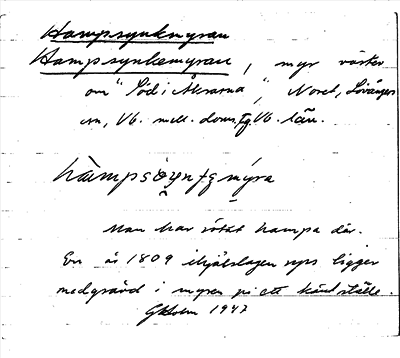 Hampsynkmyran
Hampsynkemyran, myr väster
om "Löd i Åkrarna", Noret, Lövånger
sn, Vb. mell. doms.fg. Vb. län.
hampsøynfg mýra
Man har rötat hampa där.
En år 1809 ihjälslagen ryss ligger
nedgrävd i myren på ett känt ställe.
GHolm 1947